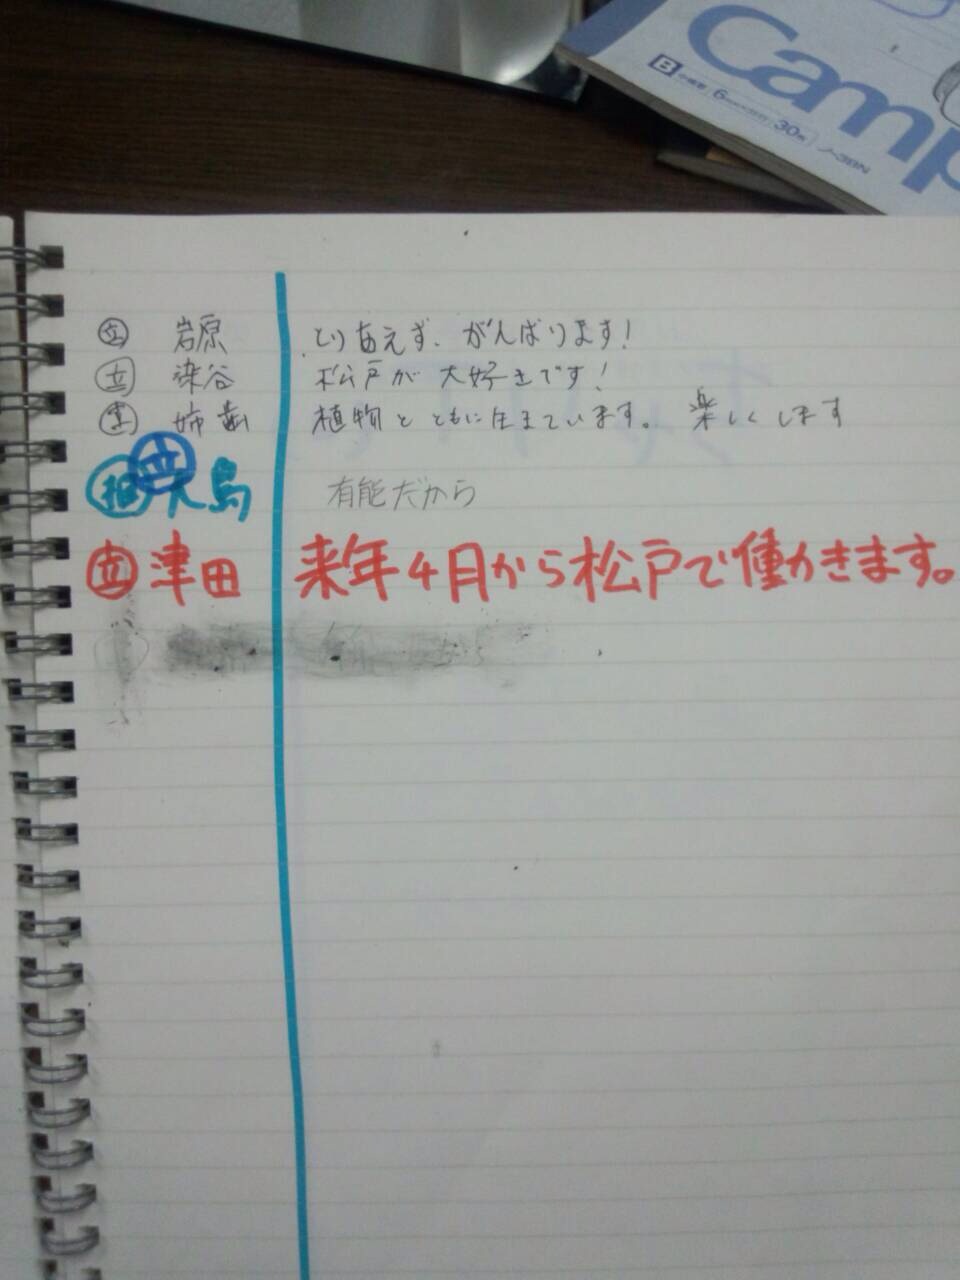 Campus
B 中横罫 6mm 30枚 ノ-3BN
立 岩原 とりあえず、がんばります!
立 染谷 松戸が大好きです!
姉歯 植物とともに生きています。 楽しくします
推 立 大島 有能だから
立 津田 来年4月から松戸で働きます。